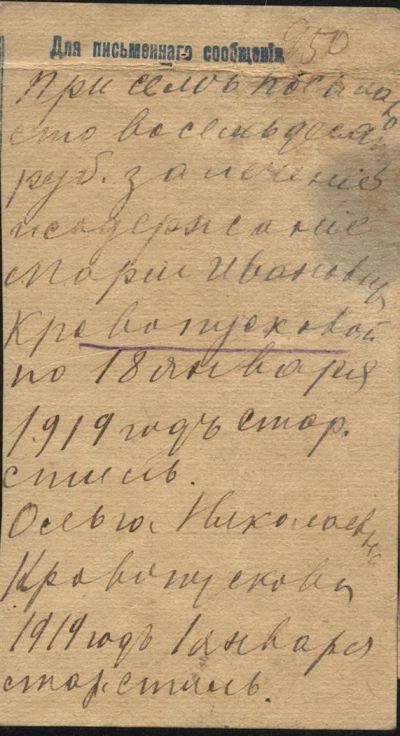 Для письменнаго сообщенія
950
При семъ посылаю
сто восемьдесят
руб. за лѣченіе
и содержаніе
Маріи Ивановны
Кровопусковой
по 18 января
1919 годъ стар.
стиль.
Ольга Николаевна
Кровопускова
1919 годъ 1 января
стар. стиль.